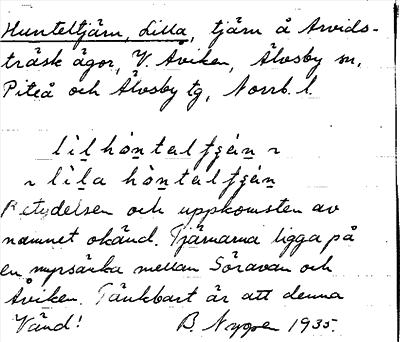 Hunteltjärn, Lilla, tjärn å Arvids-
träsk ägor, V. Åviken, Älvsby sn,
Piteå och Älvsby tg, Norrb. l.
Betydelsen och uppkomsten av
namnet okänd. Tjärnarna ligga på
en myrsänka mellan Söravan och
Åviken. Tänkbart är att denna
Vänd! B. 1935.